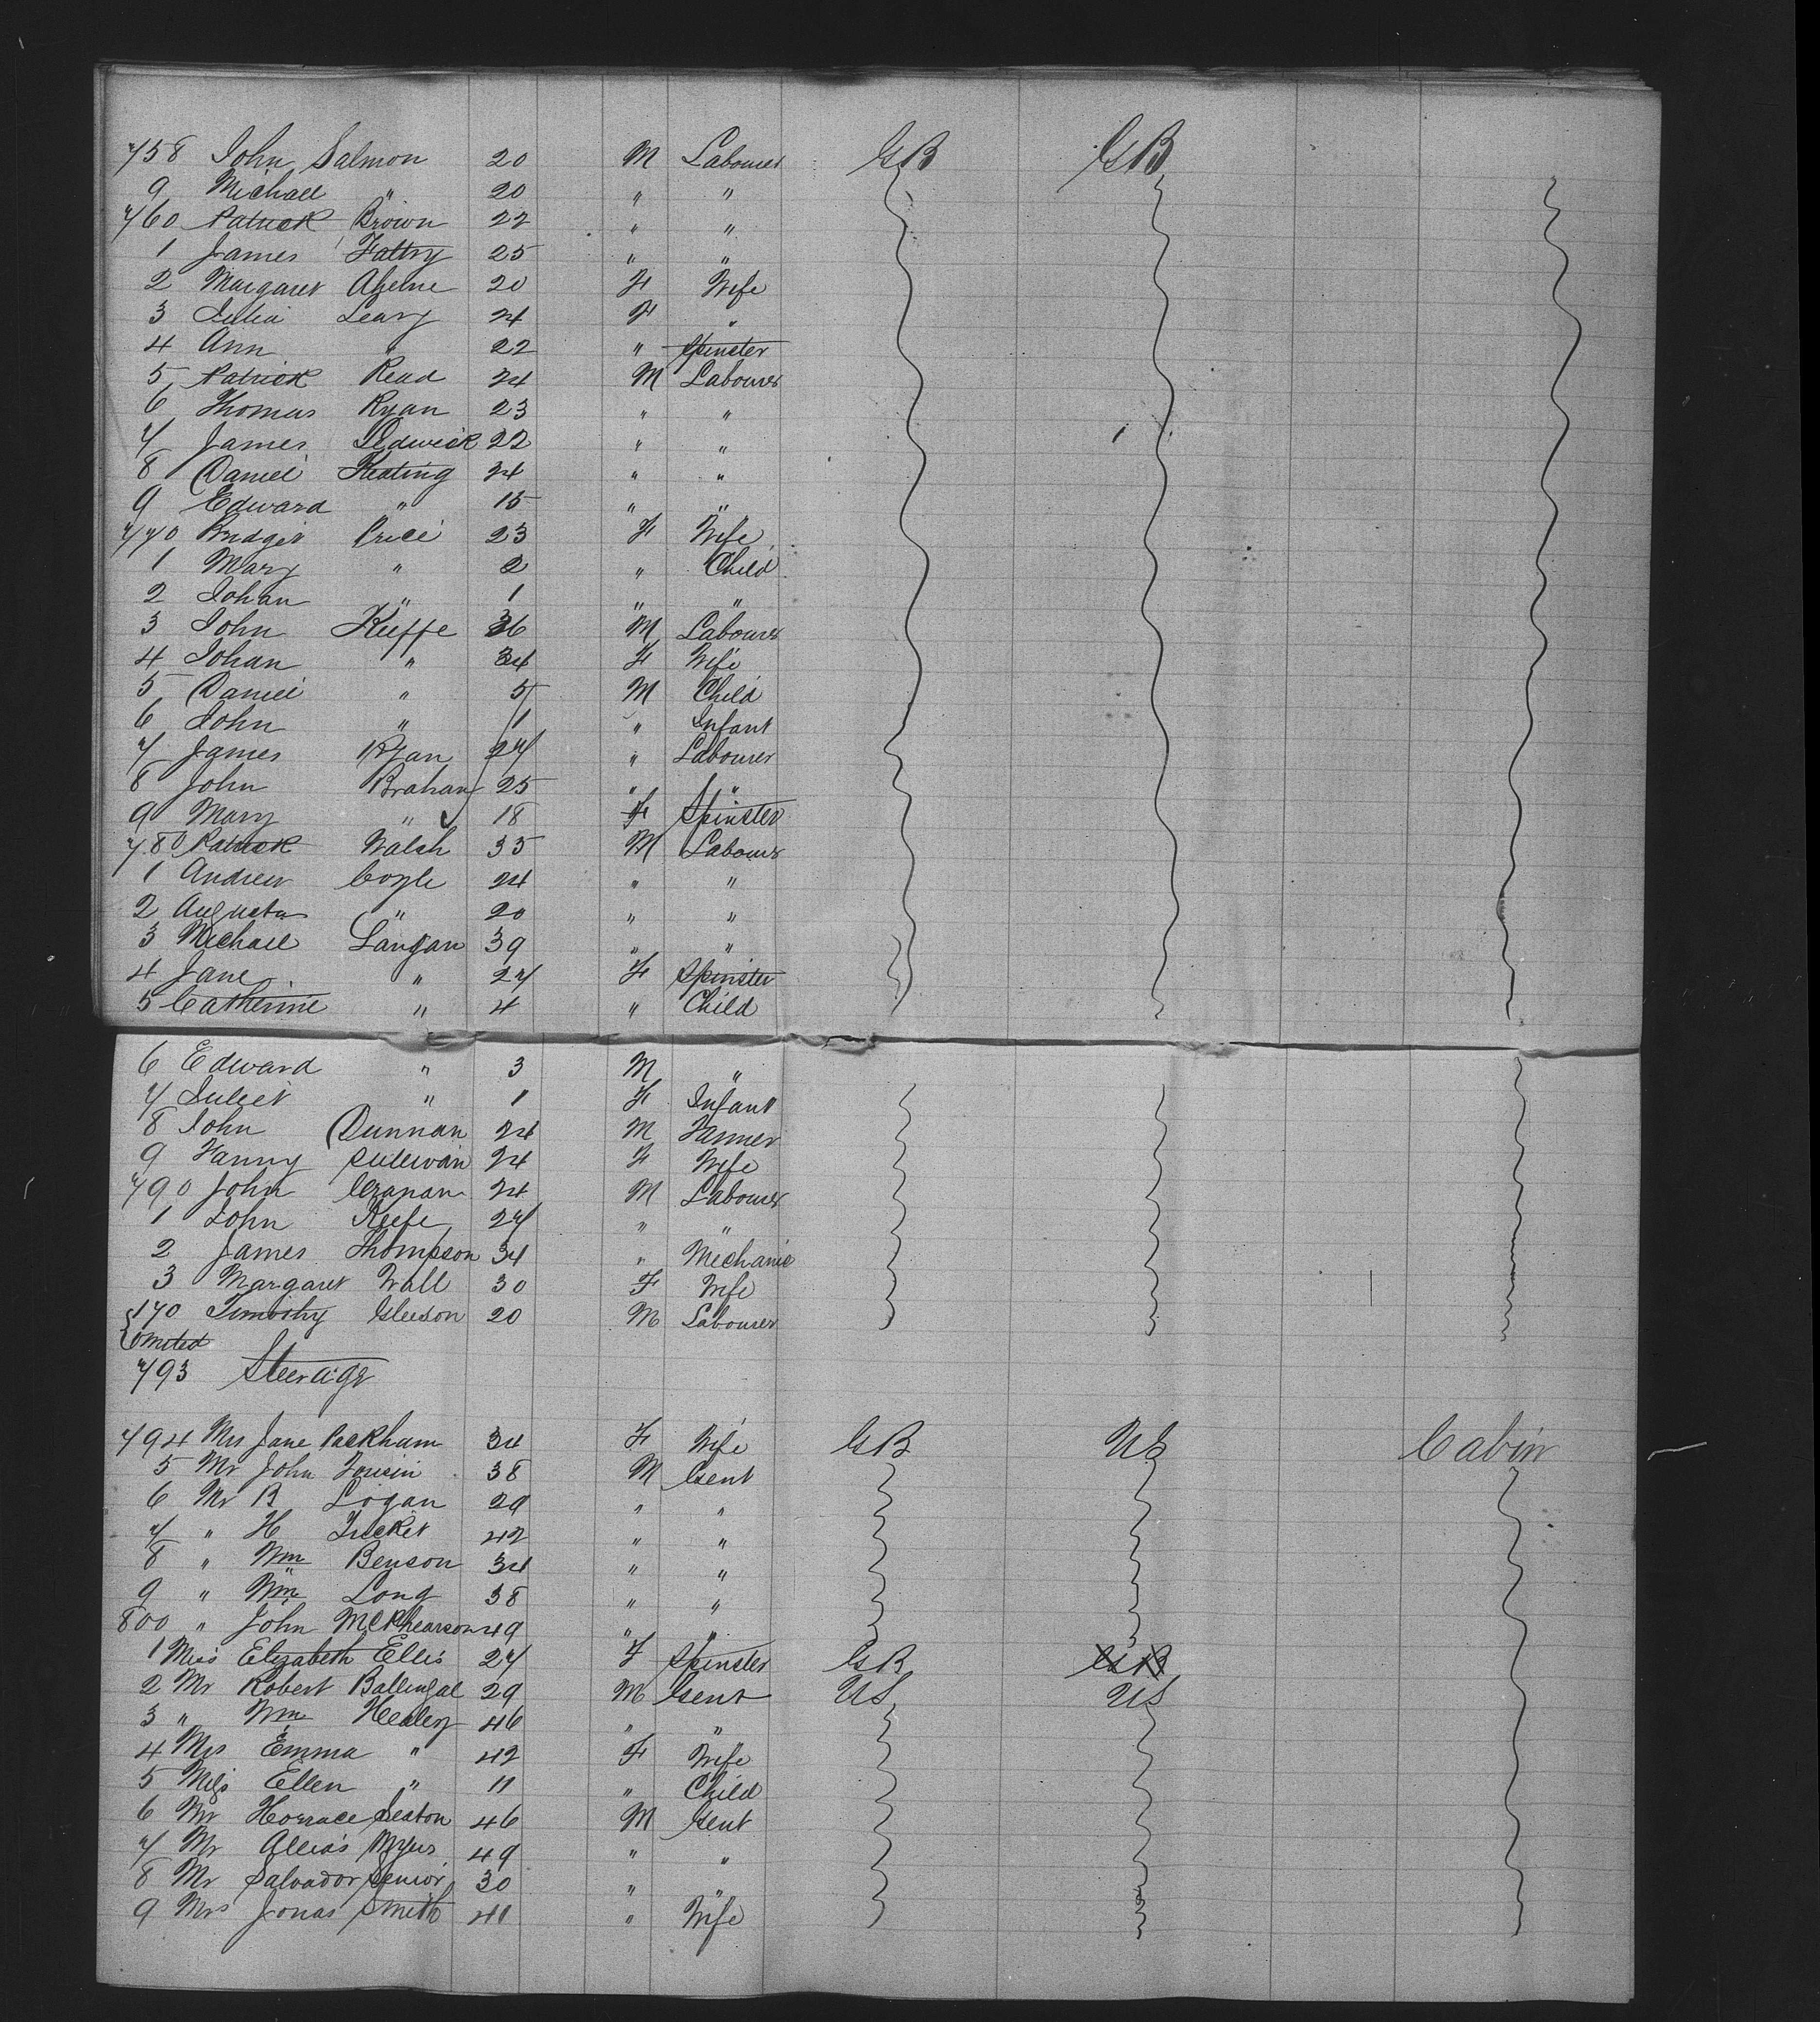 758 John Salmon 20 M Labourer GB GB
9 Michael " 20 " "
760 Patrick Brown 22 " "
1 James Fattry 25 " "
2 Margaret Aherne 20 F Wife
3 Julia Leary 24 F "
4 Ann " 22 " Spinster
5 Patrick Read 24 M Labourer
6 Thomas Ryan 23 " "
7 James Sedwick 22 " "
8 Daniel Keating 24 " "
9 Edward " 15 " "
770 Bridget Price 23 F Wife
1 Mary " 2 " Child
2 Johan " 1 " "
3 John Keeffe 36 M Labourer
4 Johan " 34 F Wife
5 Daniel " 5 M Child
6 John " 1 " Infant
7 James Ryan 27 " Labourer
8 John Brahany 25 " "
9 Mary " 18 F Spinster
780 Patrick Walsh 35 M Labourer
1 Andrew Coyle 24 " "
2 Augustus " 20 " "
3 Michael Langan 39 " "
4 Jane " 27 F Spinster
5 Catherine " 4 " Child
6 Edward " 3 M "
7 Juliet " 1 F Infant
8 John Dunnan 24 M Farmer
9 Fanny Sullivan 24 F Wife
790 John Cranan 24 M Labourer
1 John Keefe 27 " "
2 James Thompson 34 " Mechanic
3 Margaret Wall 30 F Wife
170 Timothy Gleeson 20 M Labourer
Omited
793 Steerage
794 Mrs Jane Packham 34 F Wife GB US Cabin
5 Mr John 38 M Gent
6 Mr R Logan 29 " "
7 " H Tucket 42 " "
8 " Wm Benson 34 " "
9 " Wm Long 38 " "
800 " John McPhearson 49 " "
1 Miss Elizabeth Ellis 27 F Spinster GB GB
2 Mr Robert Ballingal 29 M Gent US US
3 " Wm Healey 46 " "
4 Mrs Emma " 42 F Wife
5 Miss Ellen " 11 " Child
6 Mr Horrace Seaton 46 M Gent
7 Mr Myers 49 " "
8 Mr Salvador Senior 30 " "
9 Mrs Jonas Smith 41 " Wife